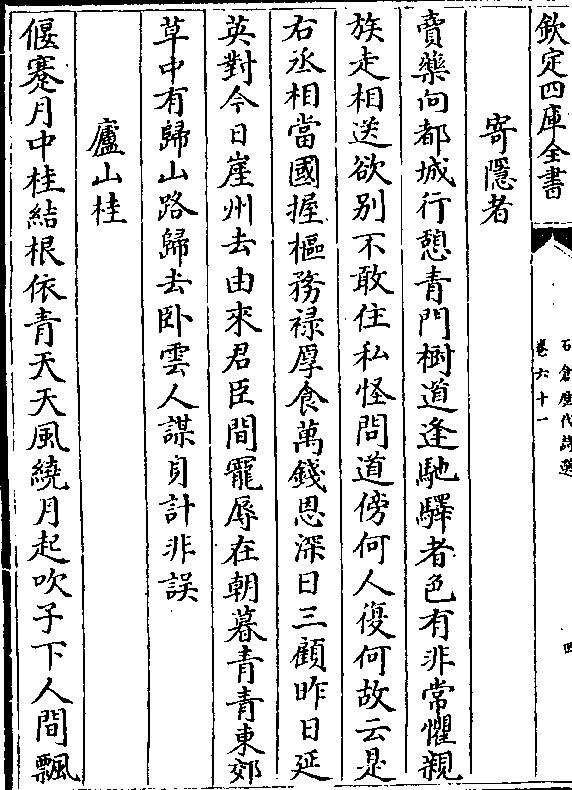 欽定四庫全書
石倉歷代詩選
卷六十一
四
寄隱者
賣藥向都城行憩青門樹道逢馳驛者色有非常懼親
族走相送欲別不敢住私怪問道傍何人復何故云是
右丞相當國握樞務祿厚食萬錢恩深日三顧昨日延
英對今日崖州去由來君臣間寵辱在朝暮青青東郊
草中有歸山路歸去卧雲人謀身計非誤
廬山桂
偃蹇月中桂結根依青天天風繞月起吹子下人間飄